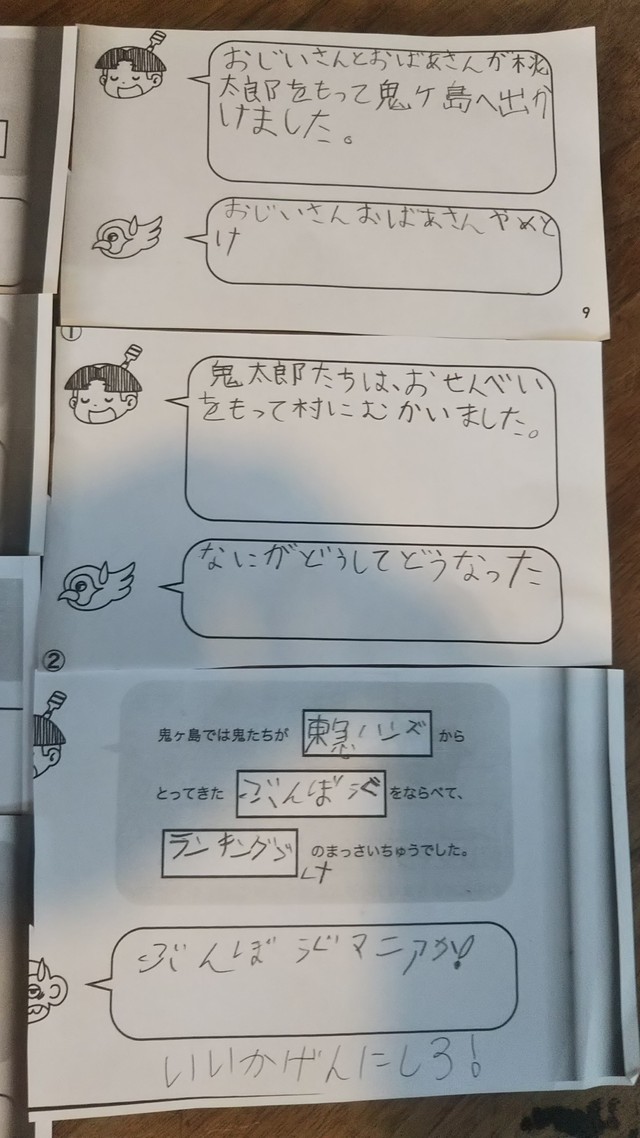 おじいさんとおばあさんが桃
太郎をもって鬼ヶ島へ出か
けました。
おじいさんおばあさんやめと
け
9
①
鬼太郎たちは、おせんべい
をもって村にむかいました。
なにがどうしてどうなった
②
鬼ヶ島では鬼たちが 東急ハンズ から
とってきた ぶんぼうぐ をならべて、
ランキングづ のまっさいちゅうでした。
け
ぶんぼうぐマニアか!
いいかげんにしろ!